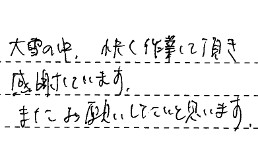 大雪の中、快く作業して頂き
感謝しています。
またお願いしたいと思います。